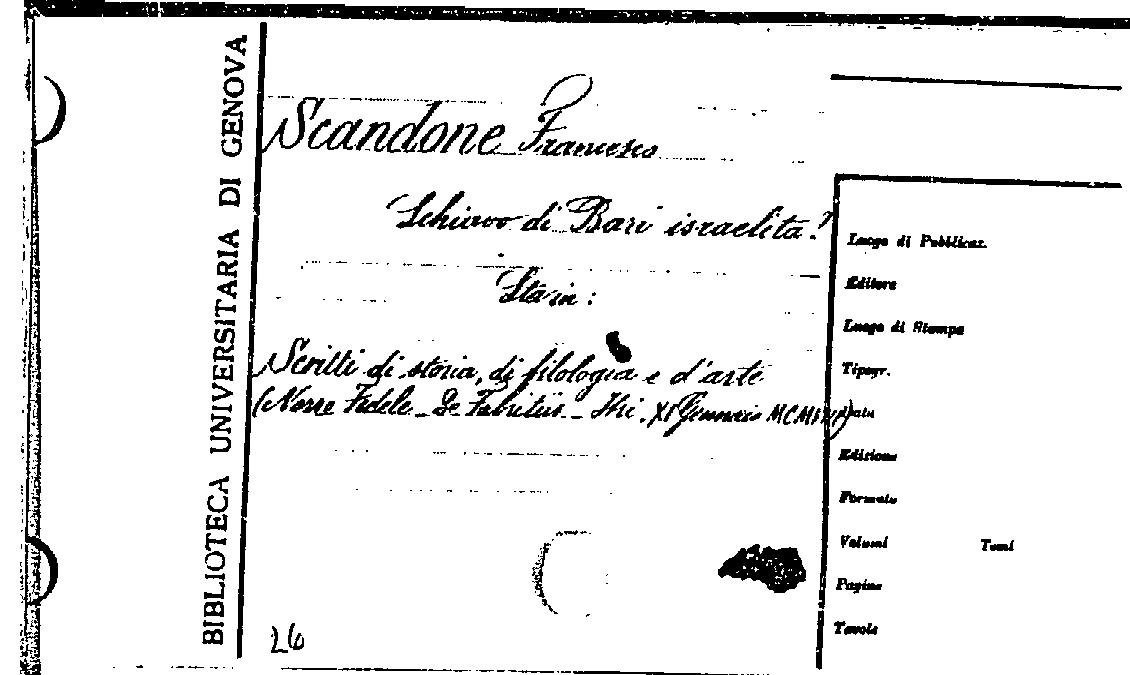 BIBLIOTECA UNIVERSITARIA DI GENOVA
Scandone Francesco
Schiavo di Bari israelita?
Sta in:
Scritti di storia, di filologia e d'arte
(Nozze Fedele - De Fabritiis - XI Gennaio
26
Luogo di Pubblicaz.
Editore
Luogo di Stampa
Tipogr.
Data
Edizione
Formato
Volumi Tomi
Pagine
Tavole